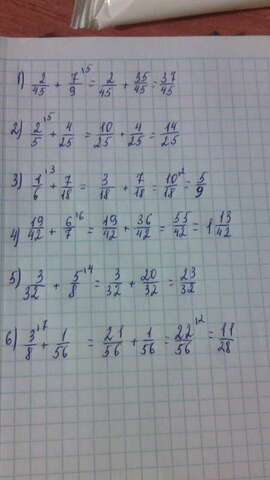 1) 2/45 + 7/9 ^5 = 2/45 + 35/45 = 37/45
2) 2/5 ^5 + 4/25 = 10/25 + 4/25 = 14/25
3) 1/6 ^3 + 7/18 = 3/18 + 7/18 = 10/18 ^2 = 5/9
4) 19/42 + 6/7 ^6 = 19/42 + 36/42 = 55/42 = 1 13/42
5) 3/32 + 5/8 ^4 = 3/32 + 20/32 = 23/32
6) 3/8 ^7 + 1/56 = 21/56 + 1/56 = 22/56 ^2 = 11/28